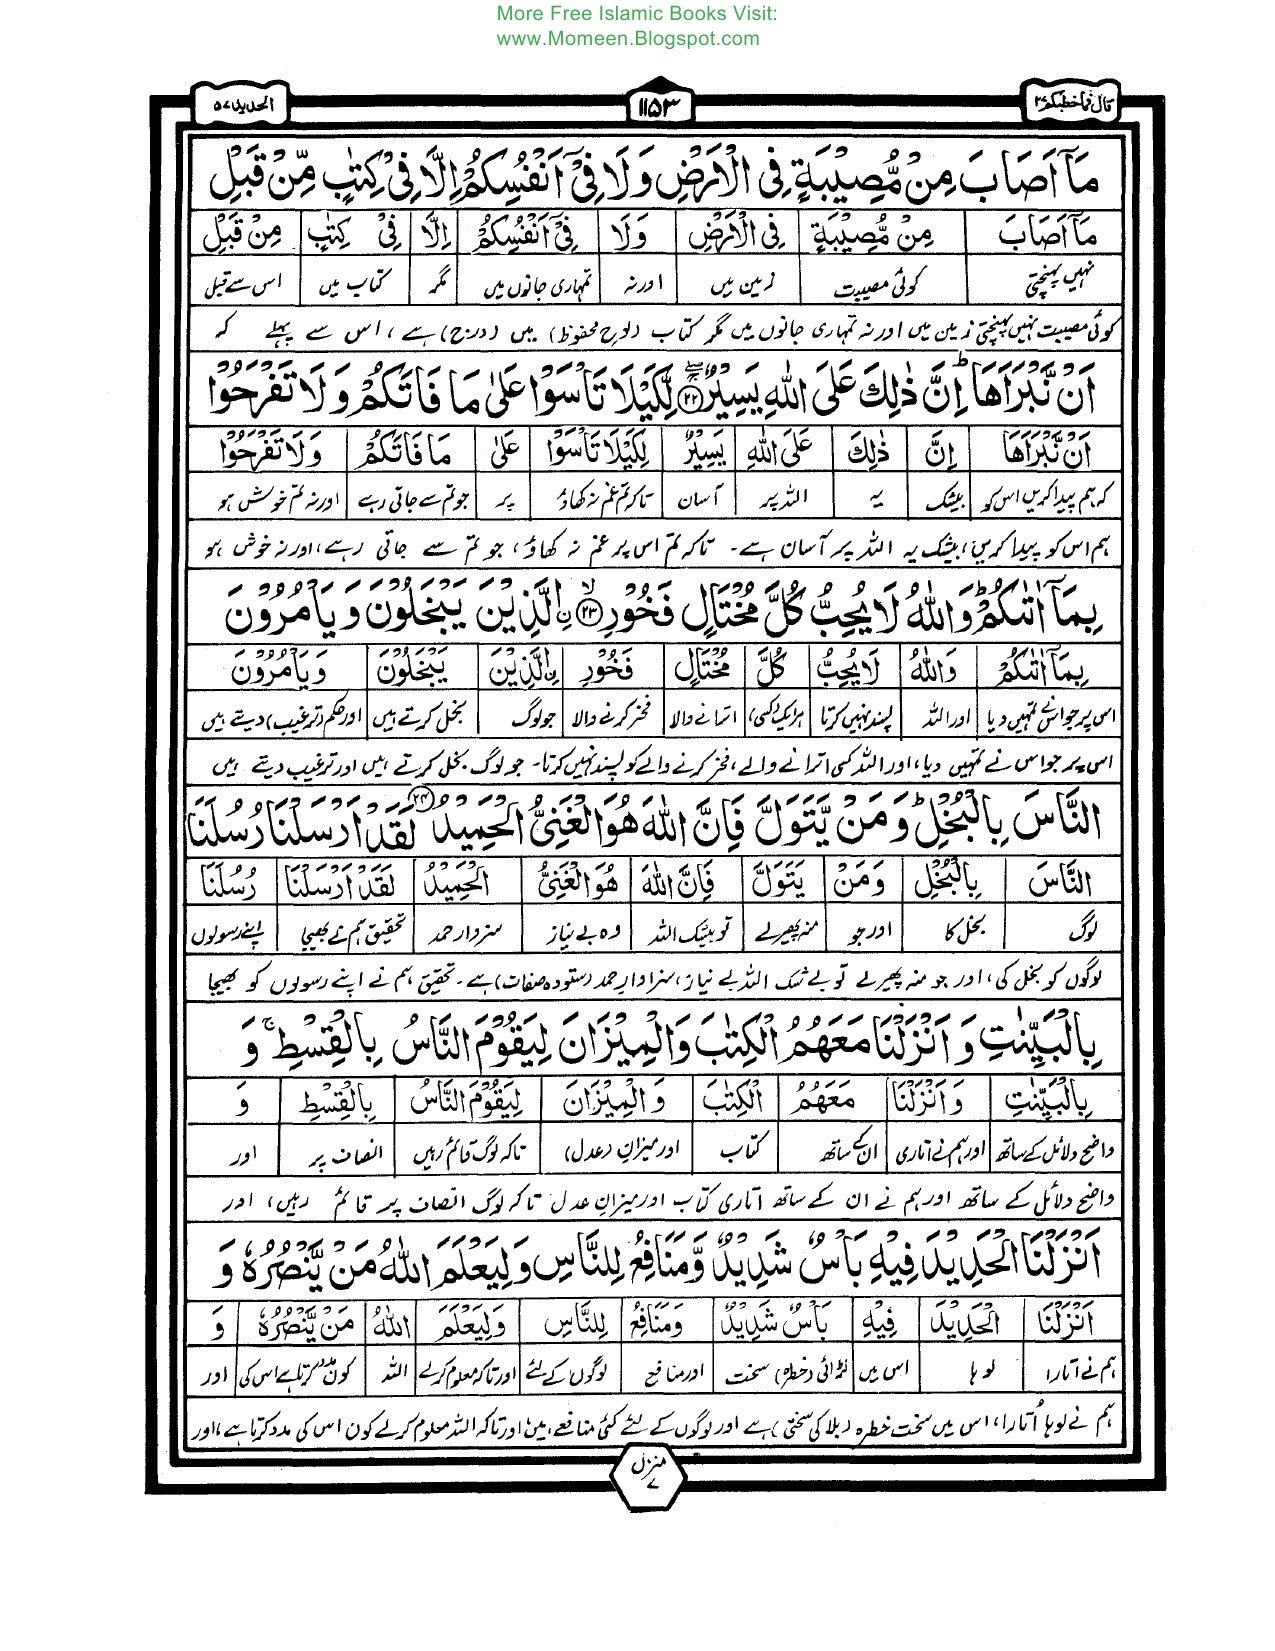 More Free Islamic Books Visit:
www.Momeen.Blogspot.com
قال فما خطبکم ۲۷ ۱۱۵۳ الحدید ۵۷
مَآ اَصَابَ مِنْ مُّصِیْبَةٍ فِی الْاَرْضِ وَ لَا فِیْۤ اَنْفُسِكُمْ اِلَّا فِیْ كِتٰبٍ مِّنْ قَبْلِ
مَآ اَصَابَ مِنْ مُّصِیْبَةٍ فِی الْاَرْضِ وَ لَا فِیْۤ اَنْفُسِكُمْ اِلَّا فِیْ كِتٰبٍ مِنْ قَبْلِ
نہیں پہنچتی کوئی مصیبت زمین میں اور نہ تمہاری جانوں میں مگر کتاب میں اس سے قبل
کوئی مصیبت نہیں پہنچتی زمین میں اور نہ تمہاری جانوں میں مگر کتاب (لوحِ محفوظ) میں (درج) ہے ، اس سے پہلے کہ
اَنْ نَّبْرَاَهَا ؕ اِنَّ ذٰلِكَ عَلَی اللّٰهِ یَسِیْرٌ ۲۲ لِّكَیْلَا تَاْسَوْا عَلٰی مَا فَاتَكُمْ وَ لَا تَفْرَحُوْا
اَنْ نَّبْرَاَهَا اِنَّ ذٰلِكَ عَلَی اللّٰهِ یَسِیْرٌ لِكَیْلَا تَاْسَوْا عَلٰی مَا فَاتَكُمْ وَ لَا تَفْرَحُوْا
کہ ہم پیدا کریں اس کو بیشک یہ اللہ پر آسان تاکہ تم غم نہ کھاؤ پر جو تم سے جاتی رہے اور نہ تم خوش ہو
ہم اس کو پیدا کریں، بیشک یہ اللہ پر آسان ہے۔ تاکہ تم اس پر غم نہ کھاؤ ، جو تم سے جاتی رہے ، اور نہ خوش ہو
بِمَاۤ اٰتٰىكُمْ ؕ وَ اللّٰهُ لَا یُحِبُّ كُلَّ مُخْتَالٍ فَخُوْرِ ۙ ۲۳ نِ الَّذِیْنَ یَبْخَلُوْنَ وَ یَاْمُرُوْنَ
بِمَاۤ اٰتٰىكُمْ وَ اللّٰهُ لَا یُحِبُّ كُلَّ مُخْتَالٍ فَخُوْرِ نِ الَّذِیْنَ یَبْخَلُوْنَ وَ یَاْمُرُوْنَ
اس پر جو اس نے تمہیں دیا اور اللہ پسند نہیں کرتا ہر ایک (کسی) اترانے والا فخر کرنے والا جو لوگ بخل کرتے ہیں اور حکم (ترغیب) دیتے ہیں
اس پر جو اس نے تمہیں دیا ، اور اللہ کسی اترانے والے ، فخر کرنے والے کو پسند نہیں کرتا۔ جو لوگ بخل کرتے ہیں اور ترغیب دیتے ہیں
النَّاسَ بِالْبُخْلِ ؕ وَ مَنْ یَّتَوَلَّ فَاِنَّ اللّٰهَ هُوَ الْغَنِیُّ الْحَمِیْدُ ۲۴ لَقَدْ اَرْسَلْنَا رُسُلَنَا
النَّاسَ بِالْبُخْلِ وَ مَنْ یَتَوَلَّ فَاِنَّ اللّٰهَ هُوَ الْغَنِیُّ الْحَمِیْدُ لَقَدْ اَرْسَلْنَا رُسُلَنَا
لوگ بخل کا اور جو منہ پھیرلے تو بیشک اللہ وہ بے نیاز سزاوارِ حمد تحقیق ہم نے بھیجا اپنے رسولوں
لوگوں کو بخل کی ، اور جو منہ پھیرلے تو بے شک اللہ بے نیاز، سزاوارِ حمد (ستودہ صفات) ہے۔ تحقیق ہم نے اپنے رسولوں کو بھیجا
بِالْبَیِّنٰتِ وَ اَنْزَلْنَا مَعَهُمُ الْكِتٰبَ وَ الْمِیْزَانَ لِیَقُوْمَ النَّاسُ بِالْقِسْطِ ۚ وَ
بِالْبَیِّنٰتِ وَ اَنْزَلْنَا مَعَهُمُ الْكِتٰبَ وَ الْمِیْزَانَ لِیَقُوْمَ النَّاسُ بِالْقِسْطِ وَ
واضح دلائل کے ساتھ اور ہم نے اتاری ان کے ساتھ کتاب اور میزانِ (عدل) تاکہ لوگ قائم رہیں انصاف پر اور
واضح دلائل کے ساتھ اور ہم نے ان کے ساتھ اتاری کتاب اور میزانِ عدل تاکہ لوگ انصاف پر قائم رہیں ، اور
اَنْزَلْنَا الْحَدِیْدَ فِیْهِ بَاْسٌ شَدِیْدٌ وَّ مَنَافِعُ لِلنَّاسِ وَ لِیَعْلَمَ اللّٰهُ مَنْ یَّنْصُرُهٗ وَ
اَنْزَلْنَا الْحَدِیْدَ فِیْهِ بَاْسٌ شَدِیْدٌ وَ مَنَافِعُ لِلنَّاسِ وَ لِیَعْلَمَ اللّٰهُ مَنْ یَّنْصُرُهٗ وَ
ہم نے اتارا لوہا اس میں لڑائی (خطرہ) سخت اور منافع لوگوں کے لئے اور تاکہ معلوم کرلے اللہ کون مدد کرتا ہے اس کی اور
ہم نے لوہا اُتارا ، اس میں سخت خطرہ (بلا کی سختی) ہے اور لوگوں کے لئے کئی منافع ہیں، اور تاکہ اللہ معلوم کرلے کون اس کی مدد کرتا ہے ، اور
منزل ۷